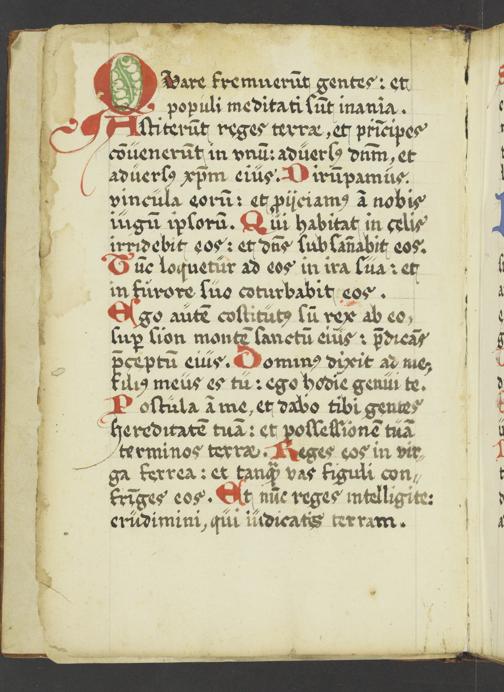 Quare fremuerūt gentes: et
populi meditati sūt inania.
Astiterūt reges terræ, et prīcipes
cōuenerūt in vnū: aduersꝰ dn̄m, et
aduersꝰ xp̄m eius. Dirūpamus
vincula eorū: et ꝓijciamꝰ ā nobis
iugū ipsorū. Qui habitat in celis
irridebit eos: et dn̄s subsan̄abit eos.
Tūc loquetur ad eos in ira sua: et
in furore suo cōturbabit eos.
Ego autē cōstitutꝰ sū rex ab eo,
suꝑ sion montē sanctū eius: p̄dicās
p̄ceptū eius. Dominus dixit ad me,
filiꝰ meus es tu: ego hodie genui te.
Postula ā me, et dabo tibi gentes
hereditatē tuā: et possessionē tuā
terminos terræ. Reges eos in vir-
ga ferrea: et tanq̄ vas figuli con-
frīges eos. Et nūc reges intelligite:
erudimini, qui iudicatis terram.